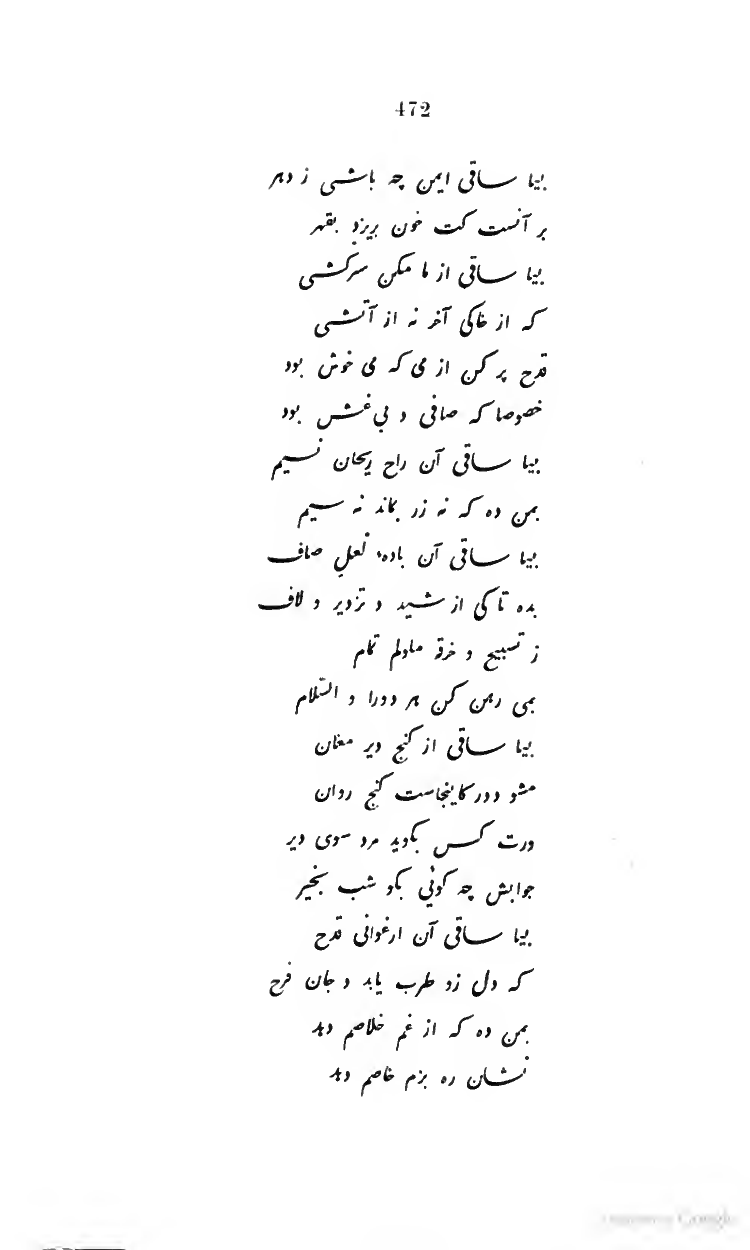 472
بیا ساقی ایمن چه باشی ز دهر
بر آنست کت خون بریزد بقهر
بیا ساقی از ما مکن سرکشی
که از خاکی آخر نه از آتشی
قدح پر کن از می که می خوش بود
خصوصا که صافی و بی غش بود
بیا ساقی آن راح ریحان نسیم
بمن ده که نه زر بماند نه سیم
بیا ساقی آن بادهٔ لعلِ صاف
بده تا کی از شید و تزویر و لاف
ز تسبیح و خرقه ملولم تمام
بمی رهن کن هر دورا و السّلام
بیا ساقی از کنج دیر مغان
مشو دور کاینجاست گنج روان
ورت کس بگوید مرو سوی دیر
جوابش چه گوئی بگو شب بخیر
بیا ساقی آن ارغوانی قدح
که دل زو طرب یابد و جان فرح
بمن ده که از غم خلاصم دهد
نشان ره بزم خاصم دهد
Google